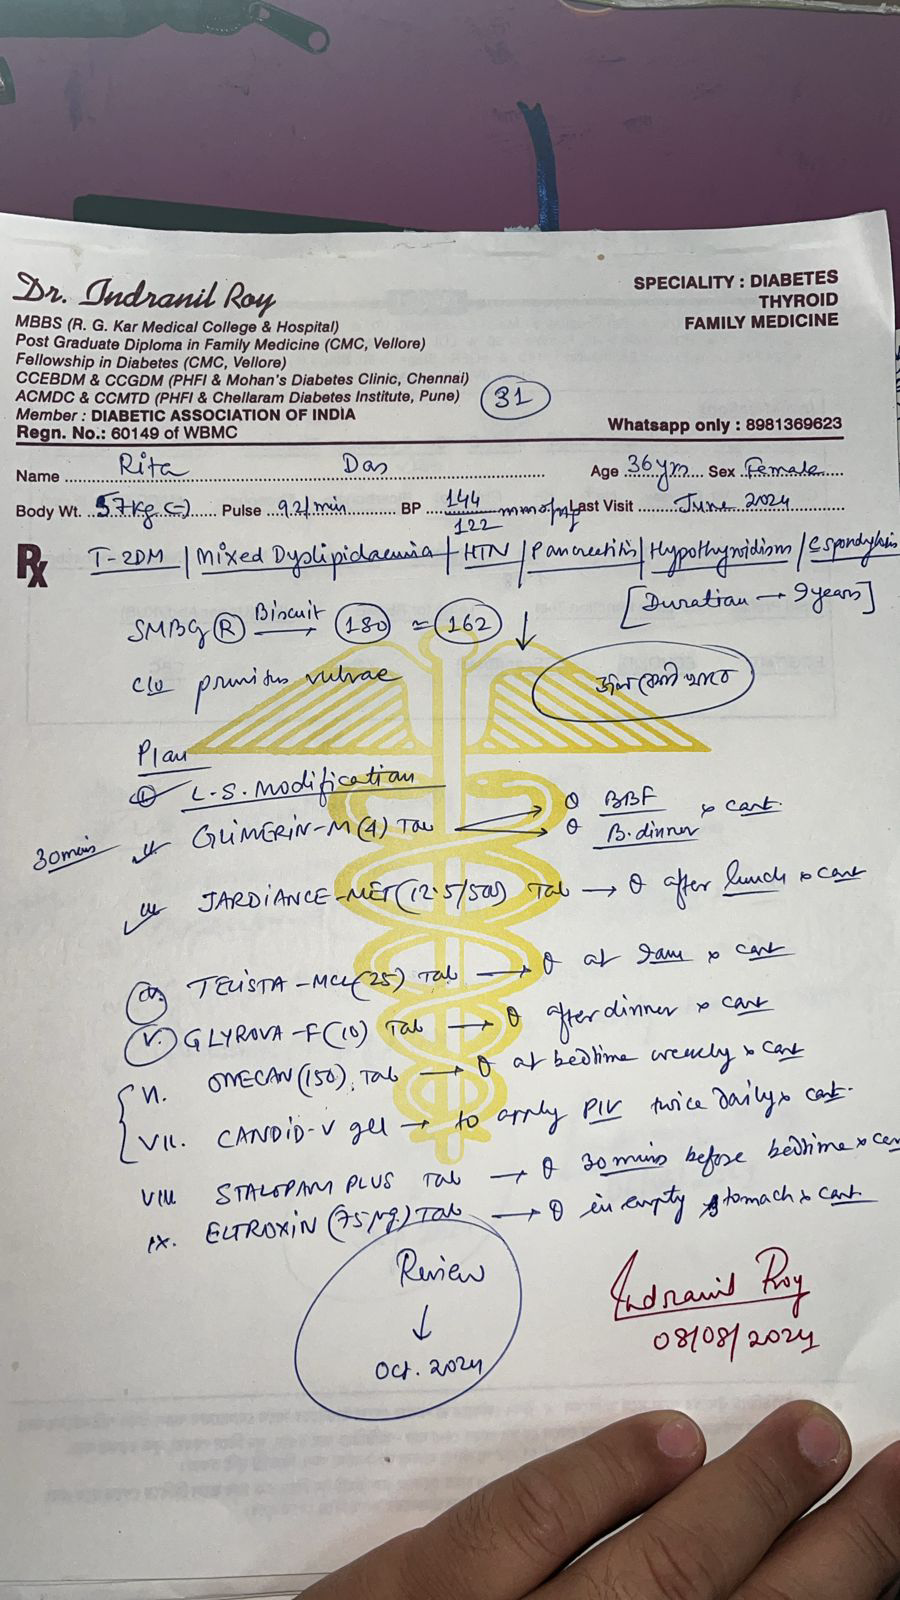 Dr. Indranil Roy
MBBS (R. G. Kar Medical College & Hospital)
Post Graduate Diploma in Family Medicine (CMC, Vellore)
Fellowship in Diabetes (CMC, Vellore)
CCEBDM & CCGDM (PHFI & Mohan's Diabetes Clinic, Chennai)
ACMDC & CCMTD (PHFI & Chellaram Diabetes Institute, Pune)
Member : DIABETIC ASSOCIATION OF INDIA
Regn. No.: 60149 of WBMC
SPECIALITY : DIABETES
THYROID
FAMILY MEDICINE
31
Whatsapp only : 8981369623
Name Rita Das Age 36yrs Sex Female
Body Wt. 57kg (-) Pulse 92/min BP 144/122 mmofHg Last Visit June 2024
Rx T-2DM | Mixed Dyslipidaemia | HTN | Pancreatitis | Hypothyroidism | C spondylosis
[Duration → 9years]
SMBG (R) Biscuit → 180 = 162 ↓
c/o pruritus vulvae
Plan
L.S. Modification
30mins
GLIMERIN-M(4) Tab BBF B.dinner x cont.
JARDIANCE-MET(12.5/500) Tab → after lunch x cont
TELISTA-MCL(25) Tab → at 9am x cont
V. GLYROVA-F(10) Tab → after dinner x cont
VI. ONECAN(150) Tab → at bedtime weekly x cont
VII. CANDID-V gel → to apply P/V twice daily x cont.
VIII STALOPAM PLUS Tab → 30mins before bedtime x
IX. ELTROXIN (75µg) Tab → in empty stomach x cont
Review
↓
Oct. 2024
Indranil Roy
08/08/2024